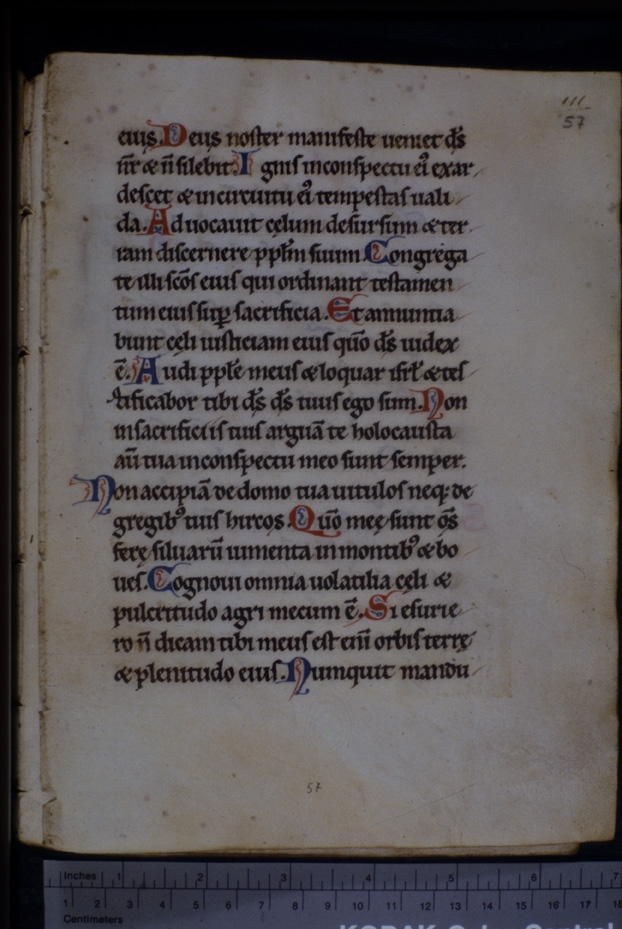 111
57
eius. Deus noster manifeste ueniet d̅s
n̅r & n̅ silebit. Ignis inconspectu ei᷒ exar
descet & incircuitu ei᷒ tempestas uali
da. Aduocauit cęlum desursum & ter
ram discernere pp̅lm suum. Congrega
te illi sc̅os eius qui ordinant testamen
tum eius sup̱ sacrificia. Et annuntia
bunt cęli iusticiam eius q̅uo d̅s iudex
e̅. Audi pp̅le meus & loquar isr̅l & tes
tificabor tibi d̅s d̅s tuus ego sum. Non
insacrificiis tuis arguā te holocausta
au̅ tua inconspectu meo sunt semper.
Non accipiā de domo tua uitulos neq; de
gregib᷒ tuis hircos. Quo̅ meę sunt o̅s
ferę siluarū iumenta inmontib᷒ & bo
ues. Cognoui omnia uolatilia cęli &
pulcritudo agri mecum e̅. Si esurie
ro n̅ dicam tibi meus est eni̅ orbis terrę
& plenitudo eius. Numquit mandu
57
Inches 1 2 3 4 5 6 7
1 2 3 4 5 6 7 8 9 10 11 12 13 14 15 16 17 18
Centimeters